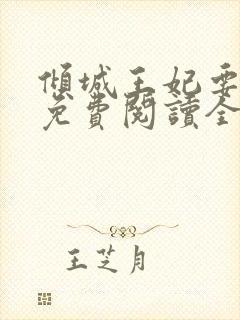 傾城王妃要
免費閱讀全
王芝月